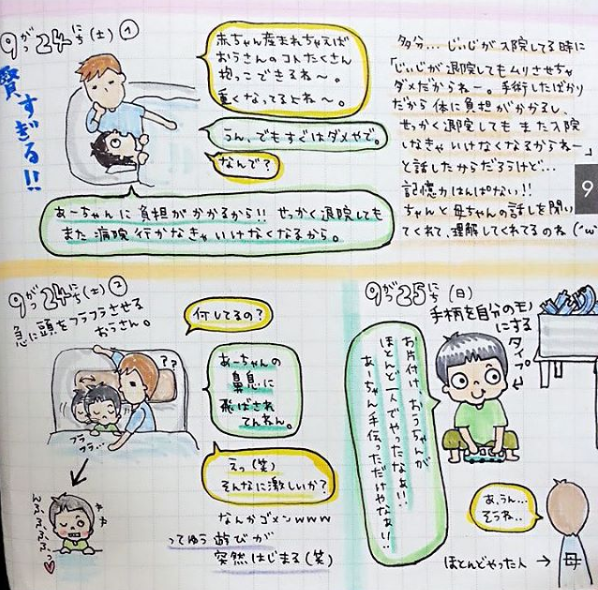 9がつ24にち(土)①
賢すぎる!!
赤ちゃん産まれちゃえば
おうさんのコトたくさん
抱っこできるね〜。
重くなってるよね〜。
うん、でもすぐはダメやで。
なんで?
あーちゃんに負担がかかるから!! せっかく退院しても
また病院行かなきゃいけなくなるから。
多分... じぃじが入院してる時に
「じぃじが退院してもムリさせちゃ
ダメだからねー。手術したばかり
だから体に負担がかかるし、
せっかく退院してもまた入院
しなきゃいけなくなるからねー」
と話したからだろうけど...
記憶力はんぱない!!
ちゃんと母ちゃんの話しを聞い
てくれて、理解してくれてるのね
9
9がつ24にち(土)②
急に頭をフラフラさせる
おうさん。
何してるの?
あーちゃんの
鼻息に
飛ばされ
てんねん。
??
フラ
フラ...
えっ(笑)
そんなに激しいか?
なんかゴメンwww
ってゆう遊びが
突然はじまる(笑)
んふふふふっ♡
9がつ25にち(日)
手柄を自分のモノ
にする
タイプ
お片付け、おうちゃんが
ほとんど一人でやったなぁ!!
あーちゃん手伝っただけやなぁ!!
あ、うん...
そうね..
ほとんどやった人 → 母